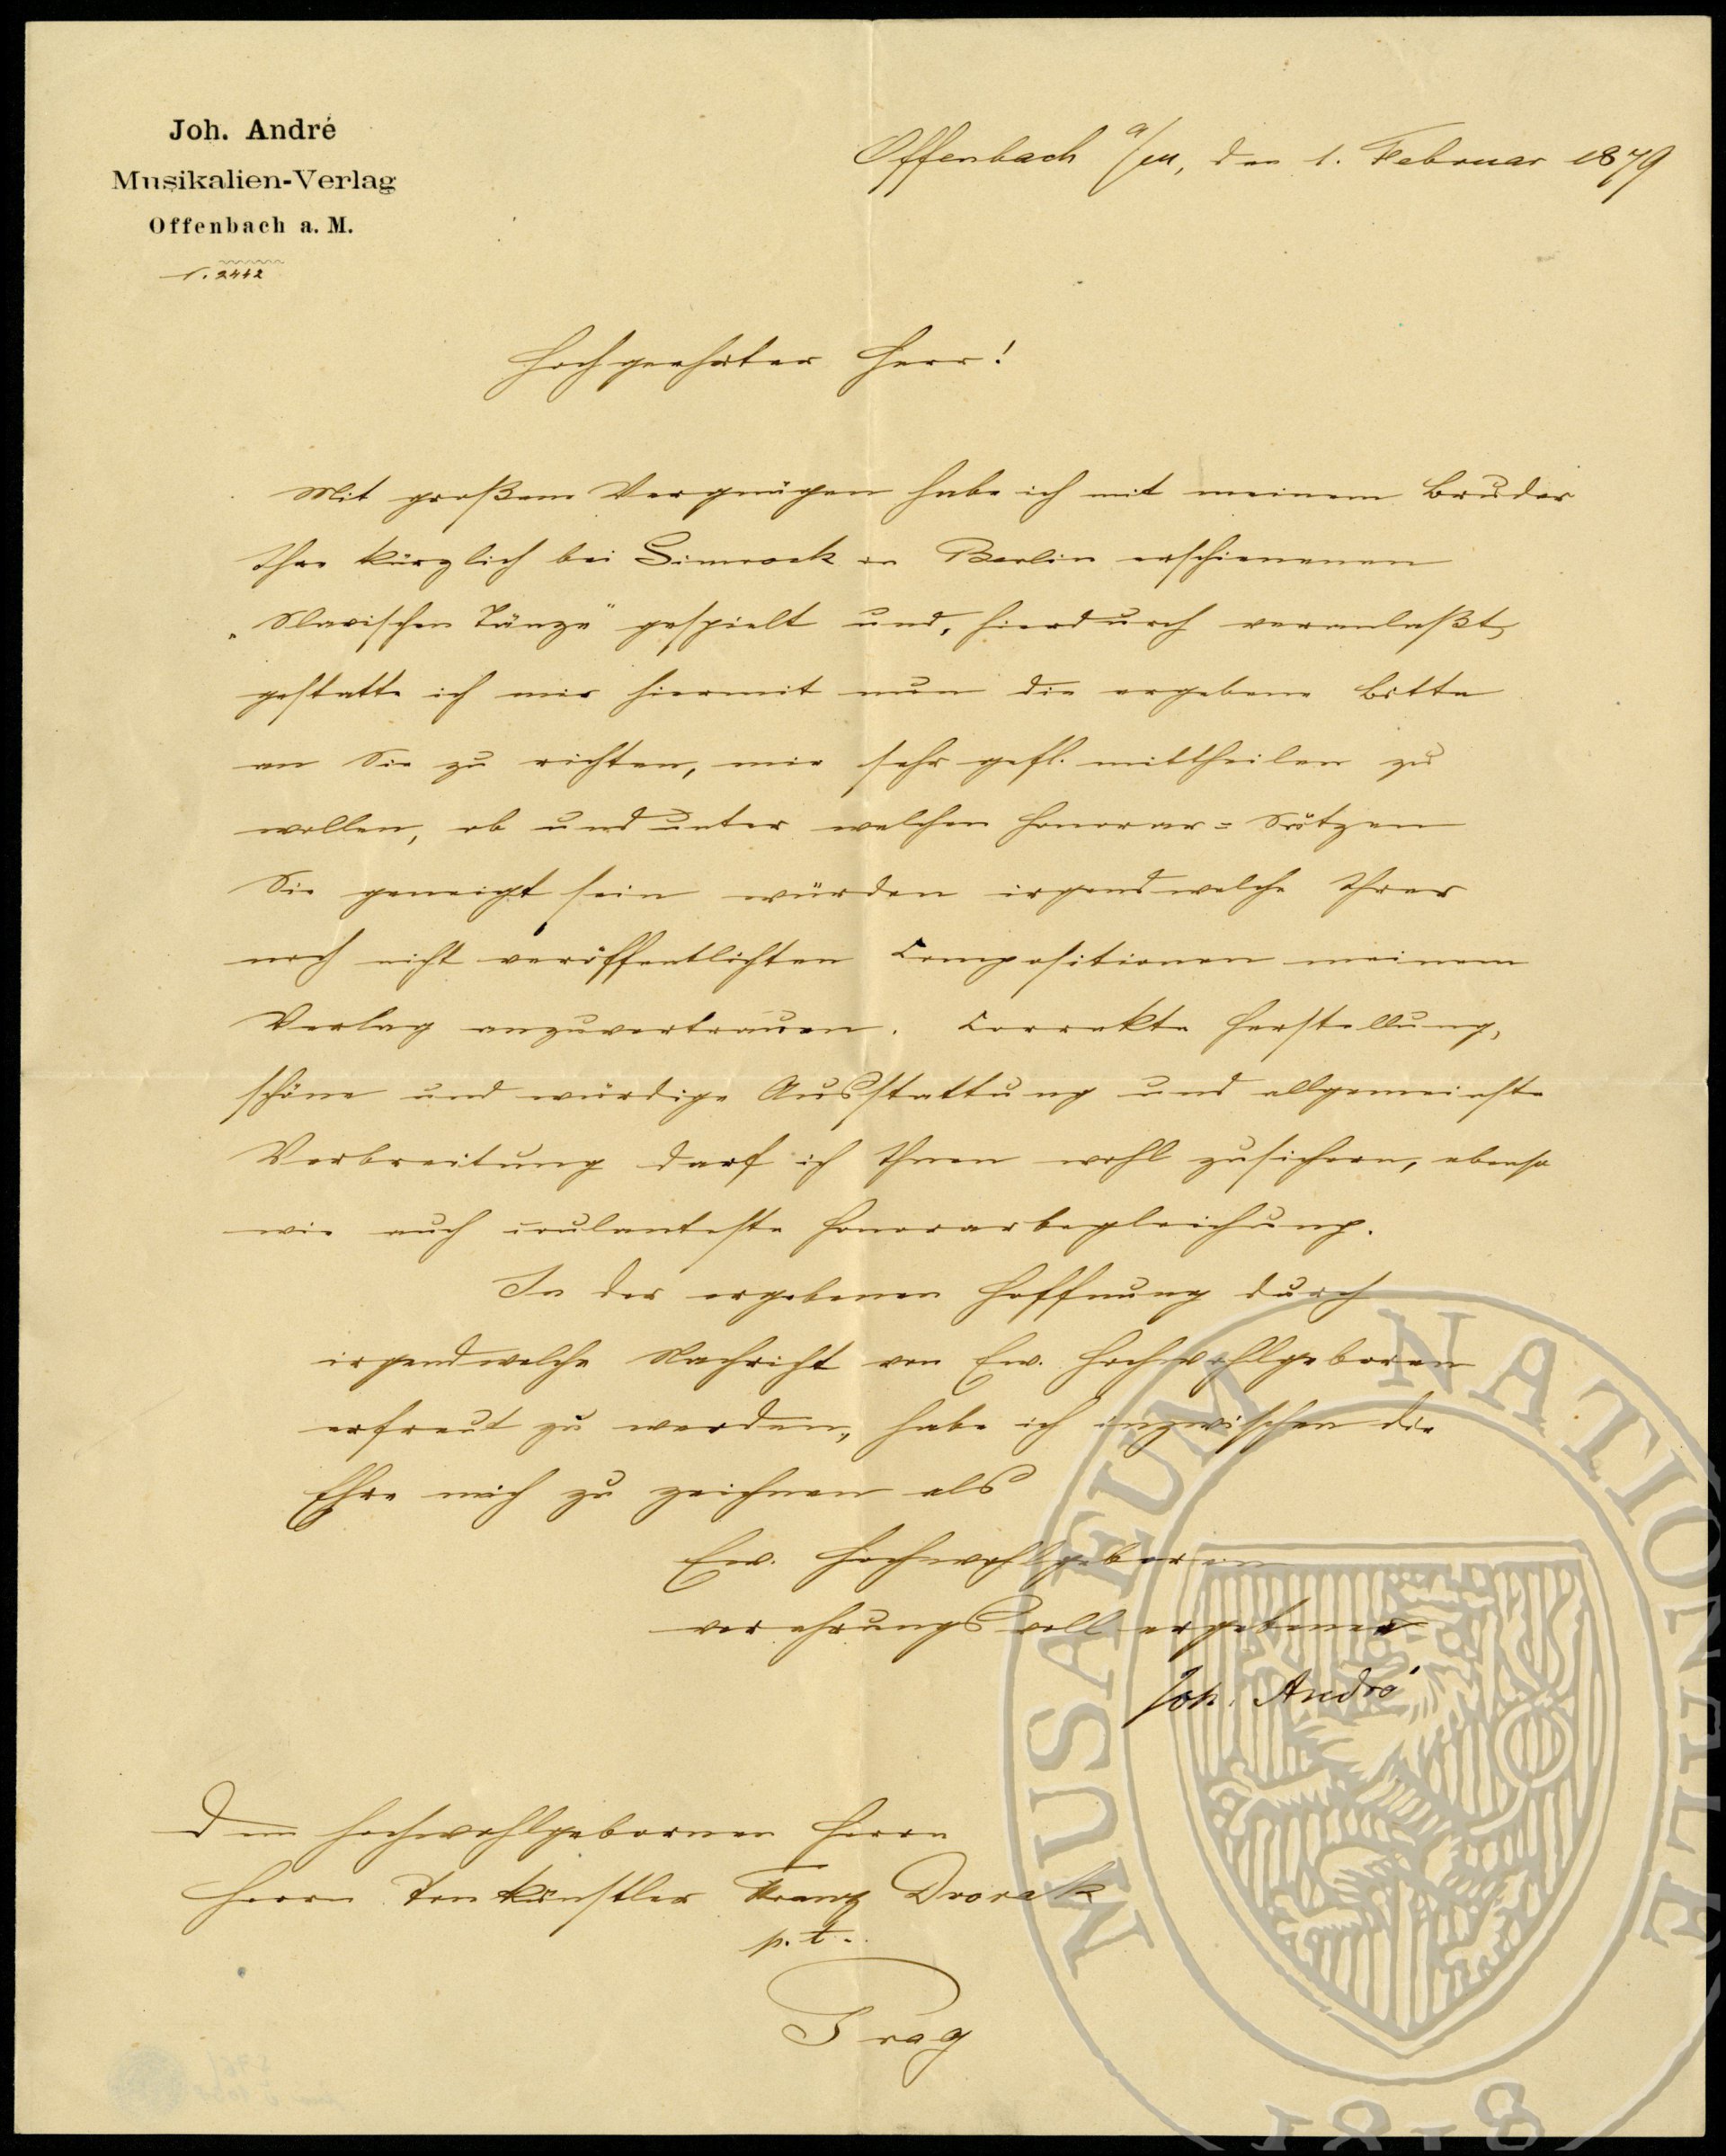 Joh. André
Musikalien-Verlag
Offenbach a. M.
N. 2442
Offenbach a/M, den 1. Februar 1879
Hochgeehrter Herr!
Mit großem Vergnügen habe ich mit meinem Bruder
Ihre kürzlich bei Simrock in Berlin erschienenen
„Slavischen Tänze" gespielt und, hierdurch veranlaßt,
gestatte ich mir hiermit nun die ergebene Bitte
an Sie zu richten, mir sehr gefl. mittheilen zu
wollen, ob und unter welchen Honorar=Sätzen
Sie geneigt sein würden irgendwelche Ihrer
noch nicht veröffentlichten Compositionen meinem
Verlag anzuvertrauen. Correkte Herstellung,
schöne und würdige Ausstattung und allgemeinste
Verbreitung darf ich Ihnen wohl zusichern, ebenso
wie auch coulanteste Honorarbegleichung.
In der ergebenen Hoffnung durch
irgendwelche Nachricht von Ew. Hochwohlgeboren
erfreut zu werden, habe ich inzwischen die
Ehre mich zu zeichnen als
Ew. Hochwohlgeboren
verehrungsvoll ergebener
Joh. André
Dem hochwohlgebornen Herrn
Herrn Tonkünstler Franz Dvorak
p.t.
Prag
MUSAEUM NATIONALE
1818